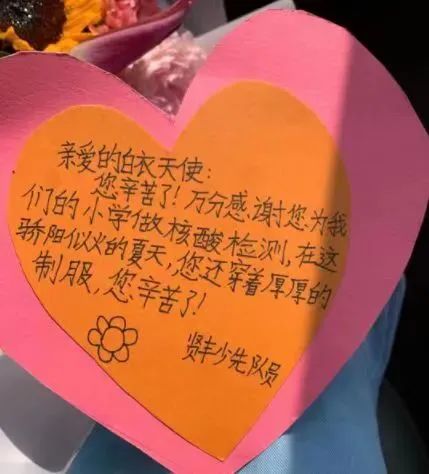 亲爱的白衣天使:
您辛苦了!万分感谢您为我
们的小学做核酸检测,在这
骄阳似火的夏天,您还穿着厚厚的
制服,您辛苦了!
贤丰少先队员